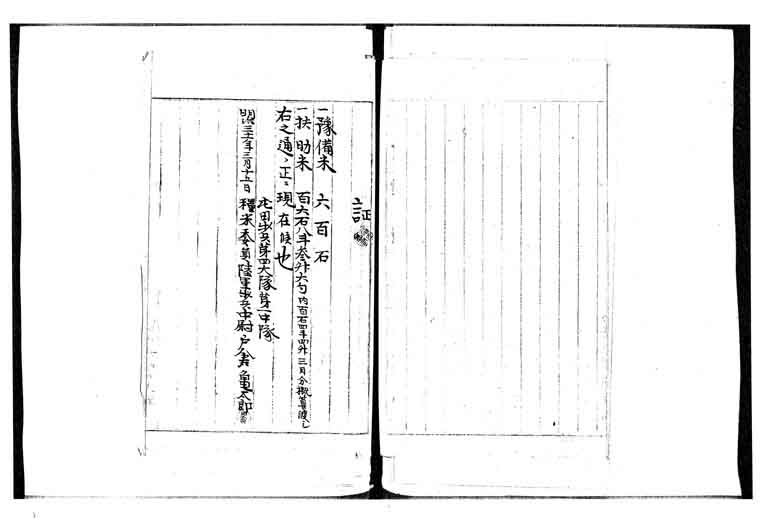 証
一豫備米 六百石
一扶助米 百六石八斗叁升六勺 内百石四斗四升 三月分概算渡し
右之通ﾆ正ﾆ現在候也
屯田歩兵第四大隊第一中隊
明治三十六年三月十五日 糧米委員陸軍歩兵中尉戸倉亀太郎